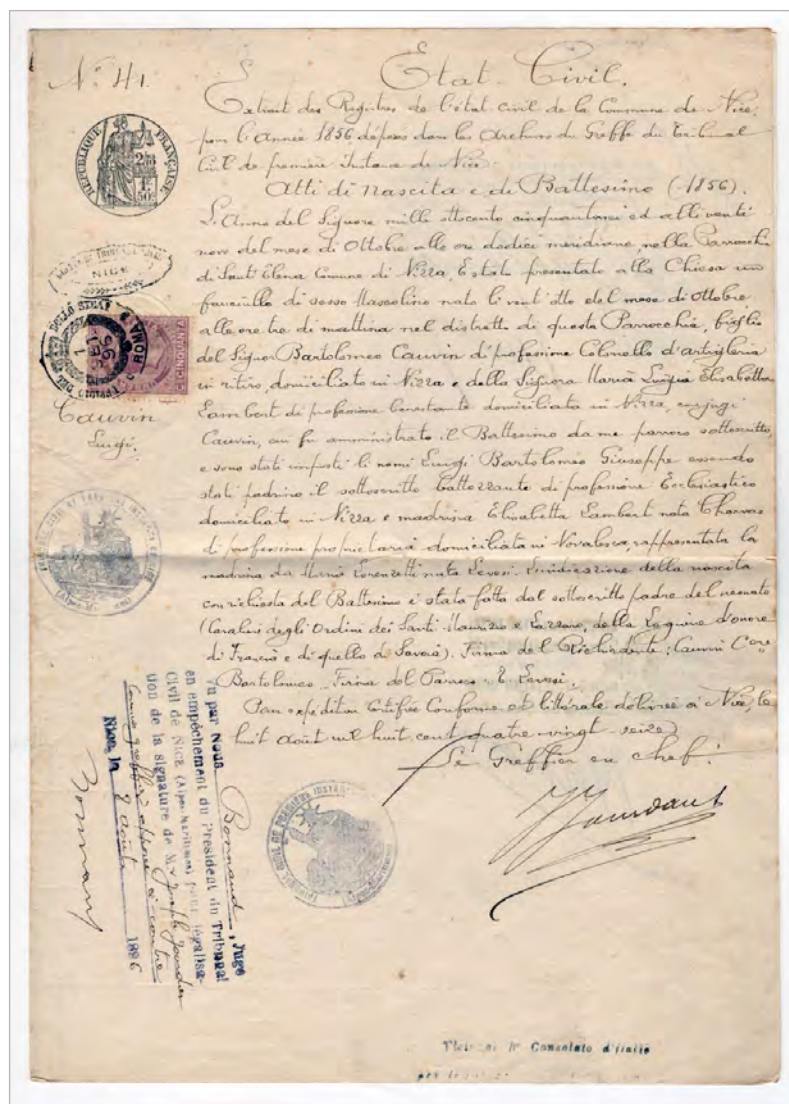 N° 41.
Etat Civil.
Extrait des Registres de l'état civil de la Commune de Nice,
pour l'Année 1856 déposés dans les Archives du Greffe du Tribunal
Civil de première Instance de Nice.
Atti di Nascita e di Battesimo (1856).
L'Anno del Signore mille ottocento cinquantasei ed alli venti
nove del mese di Ottobre alle ore dodici meridiane nella Parrocchia
di Sant'Elena Comune di Nizza, È stato presentato alla Chiesa un
fanciullo di sesso Mascolino nato li vent'otto del mese di Ottobre
alle ore tre di mattina nel distretto di questa Parrocchia, figlio
del Signor Bartolomeo Cauvin di professione Colonello d'artiglieria
in ritiro, domiciliato in Nizza e della Signora Maria Luigia Elisabetta
Lambert di professione benestante domiciliata in Nizza, conjugi
Cauvin, cui fu amministrato il Battesimo da me parroco sottoscritto,
e sono stati imposti li nomi Luigi Bartolomeo Giuseppe essendo
stati padrino il sottoscritto battezzante di professione Ecclesiastico
domiciliato in Nizza e madrina Elisabetta Lambert nata
di professione proprietaria domiciliata in Novalesa, rappresentata la
madrina da Lorenzetti nata Levesi. della nascita
con richiesta del Battesimo è stata fatta dal sottoscritto padre del neonato
(Cavaliere degli Ordini dei Santi Maurizio e Lazzaro, della Legione d'onore
di Francia e di quello di Savoia). Firma del Richiedente: Cauvin
Bartolomeo. Firma del Parroco E. Levesi.
Pour expédition Certifiée Conforme et littérale délivrée à Nice, le
huit août mil huit cent quatre-vingt-seize
Le Greffier en chef:
REPUBLIQUE FRANÇAISE
NICE
ROMA
C. CINQUANTA
Cauvin
Luigi.
TRIBUNAL CIVIL DE PREMIERE INSTANCE
Vu par Nous Bonnaud, Juge
en empêchement du Président du Tribunal
Civil de Nice (Alpes-Maritimes) pour légalisa-
tion de la signature de Mr Joseph
commis greffier apposée ci-contre
Nice, le 8 Août 1896
TRIBUNAL CIVIL DE PREMIERE INSTANCE
Consolato d'Italia